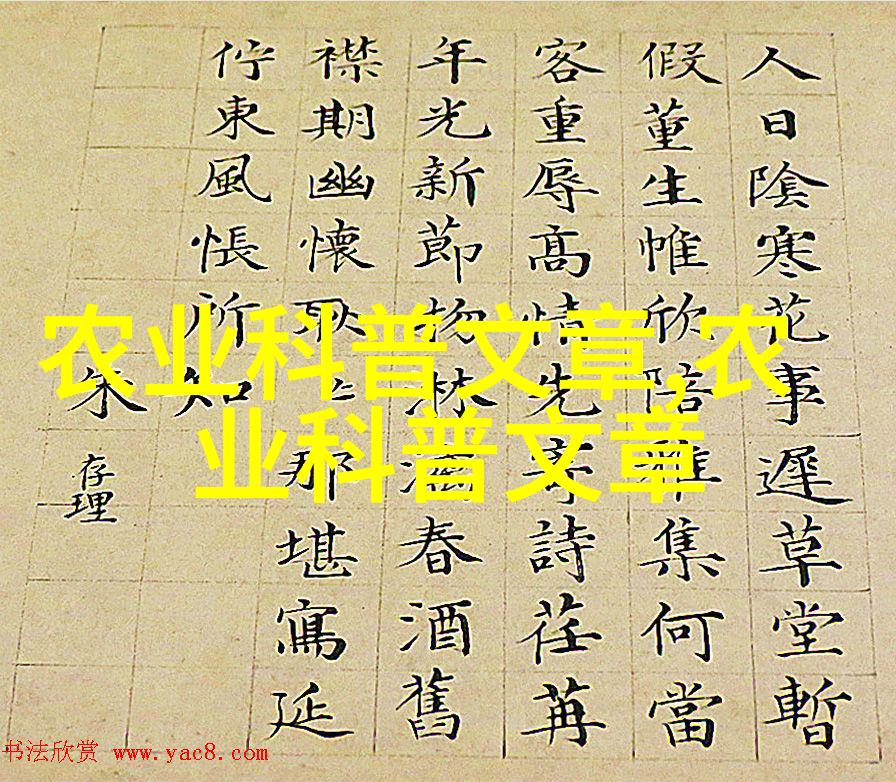 人日陰寒花事遲草堂暫
假董生帷欣陪雅集何當
客重辱高情先寄詩荏苒
年光新節物淋漓春酒舊
襟期幽懷耿〻那堪寫延
佇東風悵所知
朱存理
农业科普文章,农
业科普文章
书法欣赏 www.yac8.com